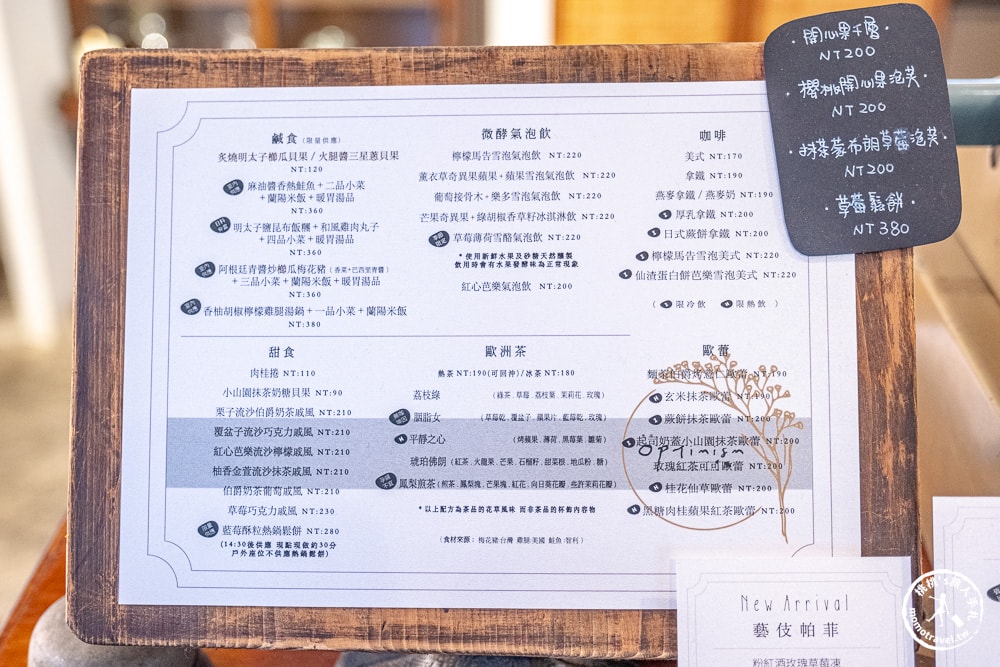 開心果千層
NT200
櫻桃開心果泡芙
NT 200
抹茶蒙布朗草莓泡芙
NT200
草莓鬆餅
NT 380
鹹食（限量供應）
炙燒明太子櫛瓜貝果 / 火腿醬三星蔥貝果
NT:120
麻油醬香熱鮭魚＋二品小菜
＋蘭陽米飯＋暖胃湯品
NT:360
明太子鹽昆布飯糰＋和風雞肉丸子
＋四品小菜＋暖胃湯品
NT:360
阿根廷青醬炒櫛瓜梅花豬（香菜+巴西里青醬）
＋三品小菜＋蘭陽米飯＋暖胃湯品
NT:360
香柚胡椒檸檬雞腿湯鍋＋一品小菜＋蘭陽米飯
NT:380
微酵氣泡飲
檸檬馬告雪泡氣泡飲 NT:220
薰衣草奇異果蘋果+蘋果雪泡氣泡飲 NT:220
葡萄接骨木+樂多雪泡氣泡飲 NT:220
芒果奇異果+綠胡椒香草籽冰淇淋飲 NT:220
草莓薄荷雪酪氣泡飲 NT:220
* 使用新鮮水果及砂糖天然釀製
飲用時會有水果發酵味為正常現象
紅心芭樂氣泡飲 NT:200
咖啡
美式 NT:170
拿鐵 NT:190
燕麥拿鐵 / 燕麥奶 NT:190
厚乳拿鐵 NT:200
日式蕨餅拿鐵 NT:200
檸檬馬告雪泡美式 NT:220
仙渣蛋白餅芭樂雪泡美式 NT:220
（ 限冷飲 限熱飲 ）
甜食
肉桂捲 NT:110
小山園抹茶奶糖貝果 NT:90
栗子流沙伯爵奶茶戚風 NT:210
覆盆子流沙巧克力戚風 NT:210
紅心芭樂流沙檸檬戚風 NT:210
柚香金萱流沙抹茶戚風 NT:210
伯爵奶茶葡萄戚風 NT:210
草莓巧克力戚風 NT:230
藍莓酥粒熱鍋鬆餅 NT:280
(14:30後供應 現點現做約30分
戶外座位不供應熱鍋鬆餅)
歐洲茶
熱茶 NT:190(可回沖) / 冰茶 NT:180
荔枝綠 （綠茶 . 草莓 . 荔枝葉 . 茉莉花 . 玫瑰）
胭脂女 （草莓乾 . 覆盆子 . 蘋果片 . 藍莓乾 . 玫瑰）
平靜之心 （烤蘋果 . 薄荷 . 黑莓葉 . 雛菊）
琥珀佛朗 （紅茶 . 火龍果 . 芒果 . 石榴籽 . 甜菜根 . 地瓜粉 . 糖）
鳳梨煎茶（煎茶 . 鳳梨塊 . 芒果塊 . 紅花 . 向日葵花瓣 . 些許茉莉花瓣）
* 以上配方為茶品的花草風味 而非茶品的杯飾內容物
（食材來源： 梅花豬:台灣 雞腿:美國 鮭魚:智利）
歐蕾
NT:190
玄米抹茶歐蕾 NT:190
蕨餅抹茶歐蕾 NT:200
起司奶蓋小山園抹茶歐蕾 NT:200
Optimism
玫瑰紅茶可可歐蕾 NT:200
桂花仙草歐蕾 NT:200
黑糖肉桂蘋果紅茶歐蕾 NT:200
New Arrival
藝伎帕菲
粉紅酒玫瑰草莓凍
momotravel.tw